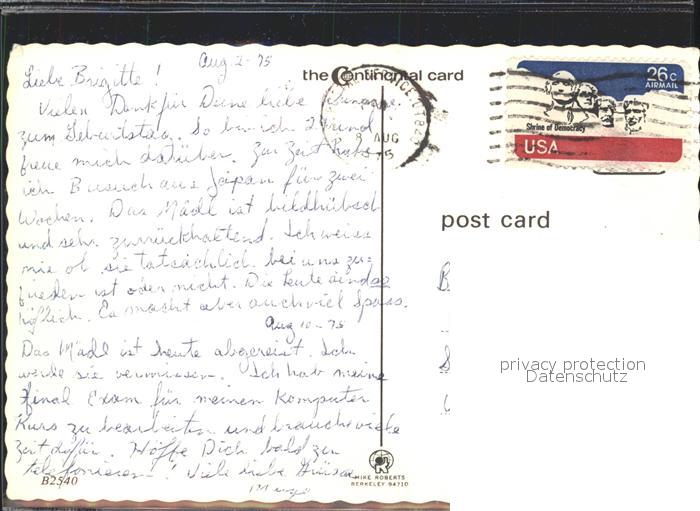 Aug 2-75
Liebe Brigitte!
Vielen Dank für Deine liebe
zum Geburtstag. So bin ich 24 und
freue mich darüber. Zur Zeit habe
ich Besuch aus Japan für zwei
Wochen. Das Mädl ist bildhübsch
und sehr zurückhaltend. Ich weiss
nie ob sie tatsächlich bei uns zu=
frieden ist oder nicht. Die Leute sind so
höflich. Es macht aber auch viel Spass.
Aug 10-75
Das Mädl ist heute abgereist. Ich
werde sie vermissen. Ich hab meine
final Exam für meinen Komputer
Kurs zu bearbeiten und brauche viele
Zeit dafür. Hoffe Dich bald zu
telefonieren! Viele liebe Grüsse
B2540
the Continental card
8 AUG
26c
AIRMAIL
Shrine of Democracy
USA
post card
privacy protection
Datenschutz
MIKE ROBERTS
BERKELEY 94710